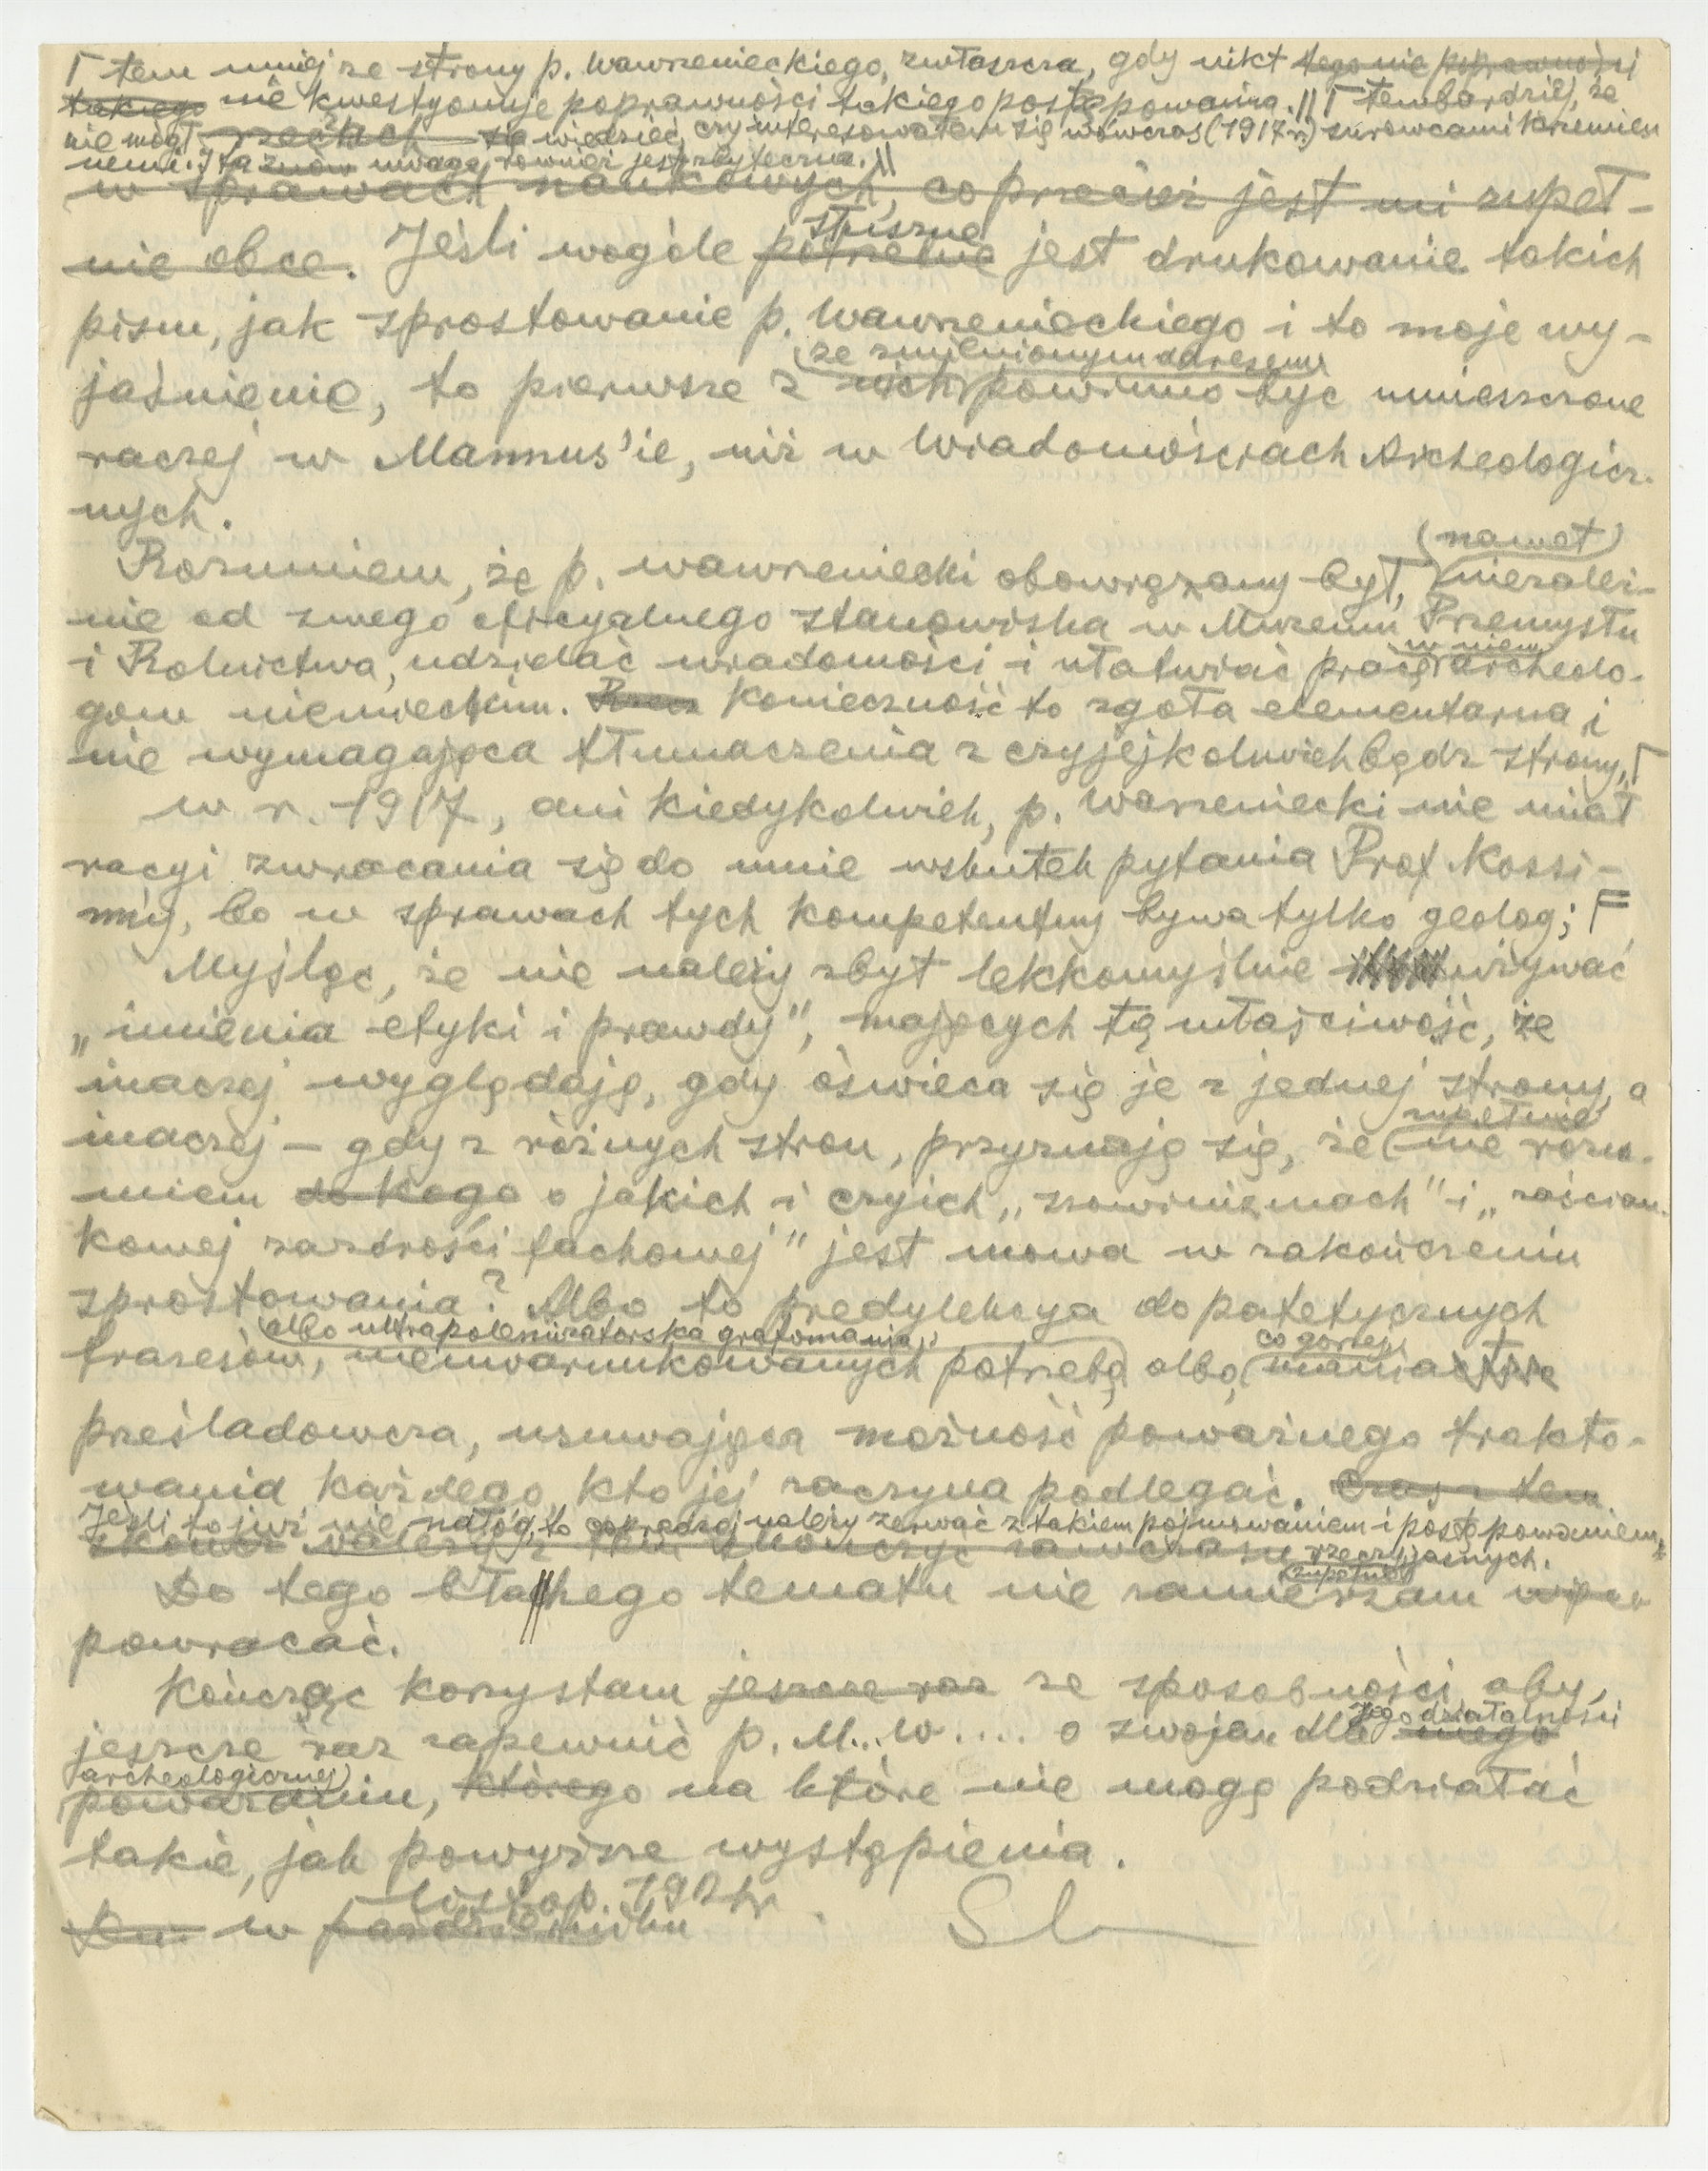 Γ tem mniej ze strony p. Wawrzenieckiego, zwłaszcza, gdy nikt tego nie poprawności
takiego nie kwestyonuje poprawności takiego postępowania. || Γ tembardziej, że
nie mógł rzeczach się wiedzieć, czy interesowałem się wówczas (1917 r.) surowcami krzemien
nemi. I ta znów uwaga również jest zbyteczna. ||
w sprawach naukowych, co przecież jest mi zupeł-
słuszne
nie obce. Jeśli wogóle potrzebne jest drukowanie takich
pism, jak sprostowanie p. Wawrzenieckiego i to moje wy-
(ze zmienionym adresem)
jaśnienie, to pierwsze z nich powinno być umieszczone
raczej w Mannus'ie, niż w Wiadomościach Archeologicz-
nych.
(nawet)
Rozumiem, że p. Wawrzeniecki obowiązany był, niezależ-
nie od swego oficyalnego stanowiska w Muzeum Przemysłu
w niem
i Rolnictwa, udzielać wiadomości i ułatwiać pracę archeolo-
gom niemieckim. Rzecz Konieczność to zgoła elementarna i
nie wymagająca tłumaczenia z czyjejkolwiekbądź strony, Γ
w r. 1917, ani kiedykolwiek, p. Warzeniecki nie miał
racyi zwracania się do mnie wskutek pytania Prof. Kossi-
nny, bo w sprawach tych kompetentny bywa tylko geolog; Γ
Myśląc, że nie należy zbyt lekkomyślnie wzywać
„imienia etyki i prawdy", mających tę właściwość, że
inaczej wyglądają, gdy oświeca się je z jednej strony, a
zupełnie
inaczej – gdy z różnych stron, przyznaję się, że nie rozu-
miem do kogo o jakich i czyich „szowinizmach" i „zaścian-
kowej zazdrości fachowej" jest mowa w zakończeniu
sprostowania? Albo to predylekcya do patetycznych
(albo ultrapolemizatorska grafomania,) co gorzej,
frazesów, nieuwarunkowanych potrzebą, albo, mania
prześladowcza, usuwająca możność poważnego trakto-
wania każdego, kto jej zaczyna podlegać. Czas z tem
Jeśli to już nie nałóg, to coprędzej należy zerwać z takiem pojmowaniem i postępowaniem,
skończ należy z tem skończyć zawczasu rzeczy jasnych.
(zupełnie)
Do tego błahego tematu nie zamierzam więcej
powracać.
Kończąc korzystam jeszcze raz ze sposobności, aby,
Jego działalności
jeszcze raz zapewnić p. M... W.... o swojem dla niego
archeologicznej
poważaniu, którego na które nie mogą podziałać
takie, jak powyższe wystąpienia.
listop. 192
Dn. w październiku